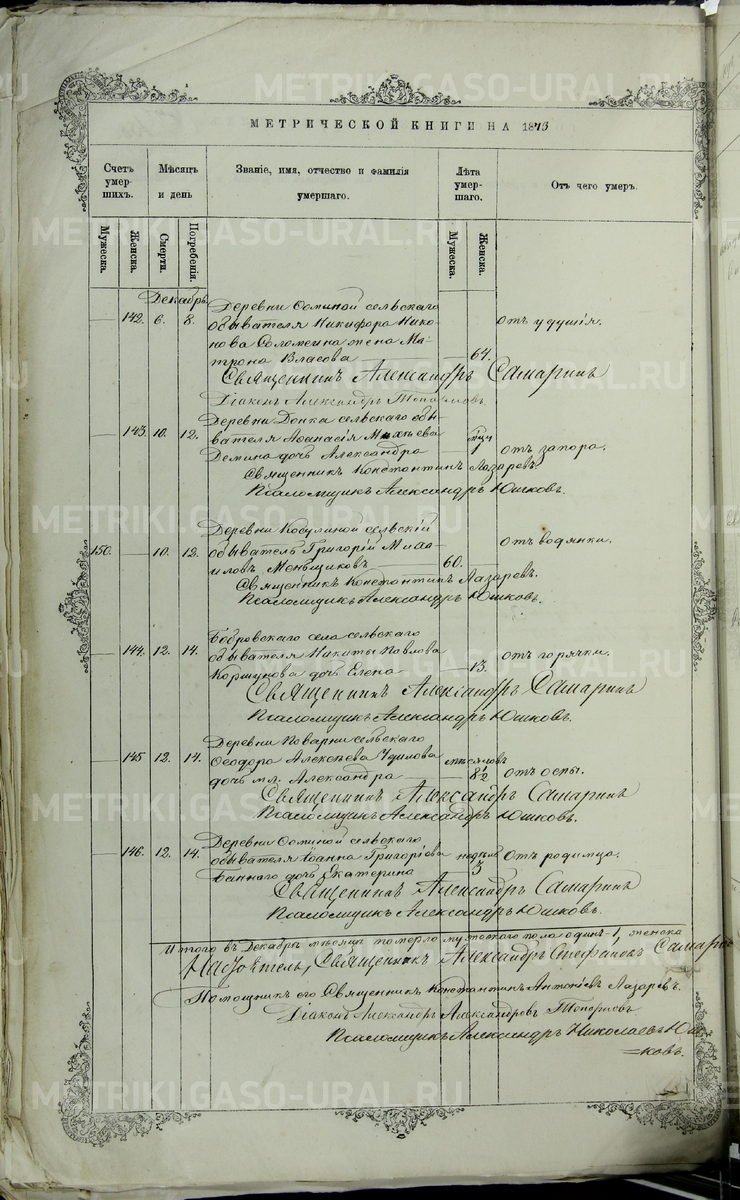 МЕТРИЧЕСКОЙ КНИГИ НА 1873
Счетъ умер- шихъ.
Мѣсяцъ и день
Званіе, имя, отчество и фамилія умершаго.
Лѣта умер- шаго.
Отъ чего умеръ.
Мужеска. Женска. Смерти. Погребенія. Мужеска. Женска.
Декабрь
Деревни Осминой сельскаго
142. 6. 8. обывателя Никифора Нико- отъ удушія.
нова Соломеина жена Ма-
трона Власова 64.
Священникъ Александръ Самаринъ
Діаконъ Александръ Топорковъ.
Деревни Донка сельскаго обы-
143. 10. 12. вателя Аѳанасія Михѣева
Демина дочь Александра 1 отъ запора.
Священникъ Константинъ Лазаревъ.
Псаломщикъ Александръ Юшковъ.
Деревни Косулиной сельскій
150. 10. 12. обыватель Григорій Миха- отъ водянки.
иловъ Меньщиковъ 60.
Священникъ Константинъ Лазаревъ.
Псаломщикъ Александръ Юшковъ.
Бобровскаго села сельскаго
144. 12. 14. обывателя Никиты Павлова отъ горячки.
Коршунова дочь Елена 13.
Священникъ Александръ Самаринъ
Псаломщикъ Александръ Юшковъ.
Деревни Поварни сельскаго
145 12. 14. Ѳеодора Алексѣева мѣсяцовъ
дочь мл. Александра 8½ отъ оспы.
Священникъ Александръ Самаринъ
Псаломщикъ Александръ Юшковъ.
Деревни Осминой сельскаго
146. 12. 14. обывателя Іоанна Григоріева недѣль отъ родимца.
дочь Екатерина 3
Священникъ Александръ Самаринъ
Псаломщикъ Александръ Юшковъ.
Итого въ Декабрѣ мѣсяцѣ померло мужескаго пола одинъ - 1, женска
Настоятель, Священникъ Александръ Стефановъ Самаринъ
Помощникъ его Священникъ Константинъ Антоніевъ Лазаревъ.
Діаконъ Александръ Александровъ Топорковъ
Псаломщикъ Александръ Николаевъ Юш-
ковъ.
METRIKI.GASO-URAL.RU